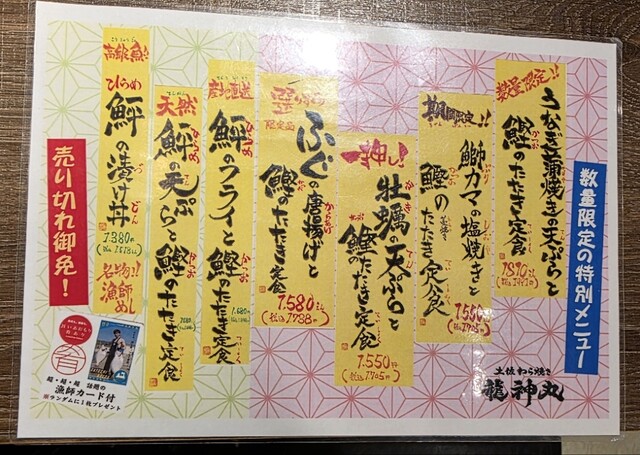 数量限定の特別メニュー
数量限定!!
うなぎ蒲焼きの天ぷらと
鰹のたたき定食
期間限定!!
鰤カマの塩焼きと
鰹のたたき定食
一押し!
牡蠣の天ぷらと
鰹のたたき定食
1.550円
(税込1705円)
限定品
ふぐの唐揚げと
鰹のたたき定食
1.580円
(税込1738円)
産地直送
鮃のフライと
鰹のたたき定食
天然
鮃の天ぷらと
鰹のたたき定食
高級魚!
ひらめ
鮃の漬け丼
1.380円
(税込1518円)
名物!!
漁師めし
売り切れ御免!
超・超・超 話題の
漁師カード付
※ランダムに1枚プレゼント
土佐わら焼き
龍神丸